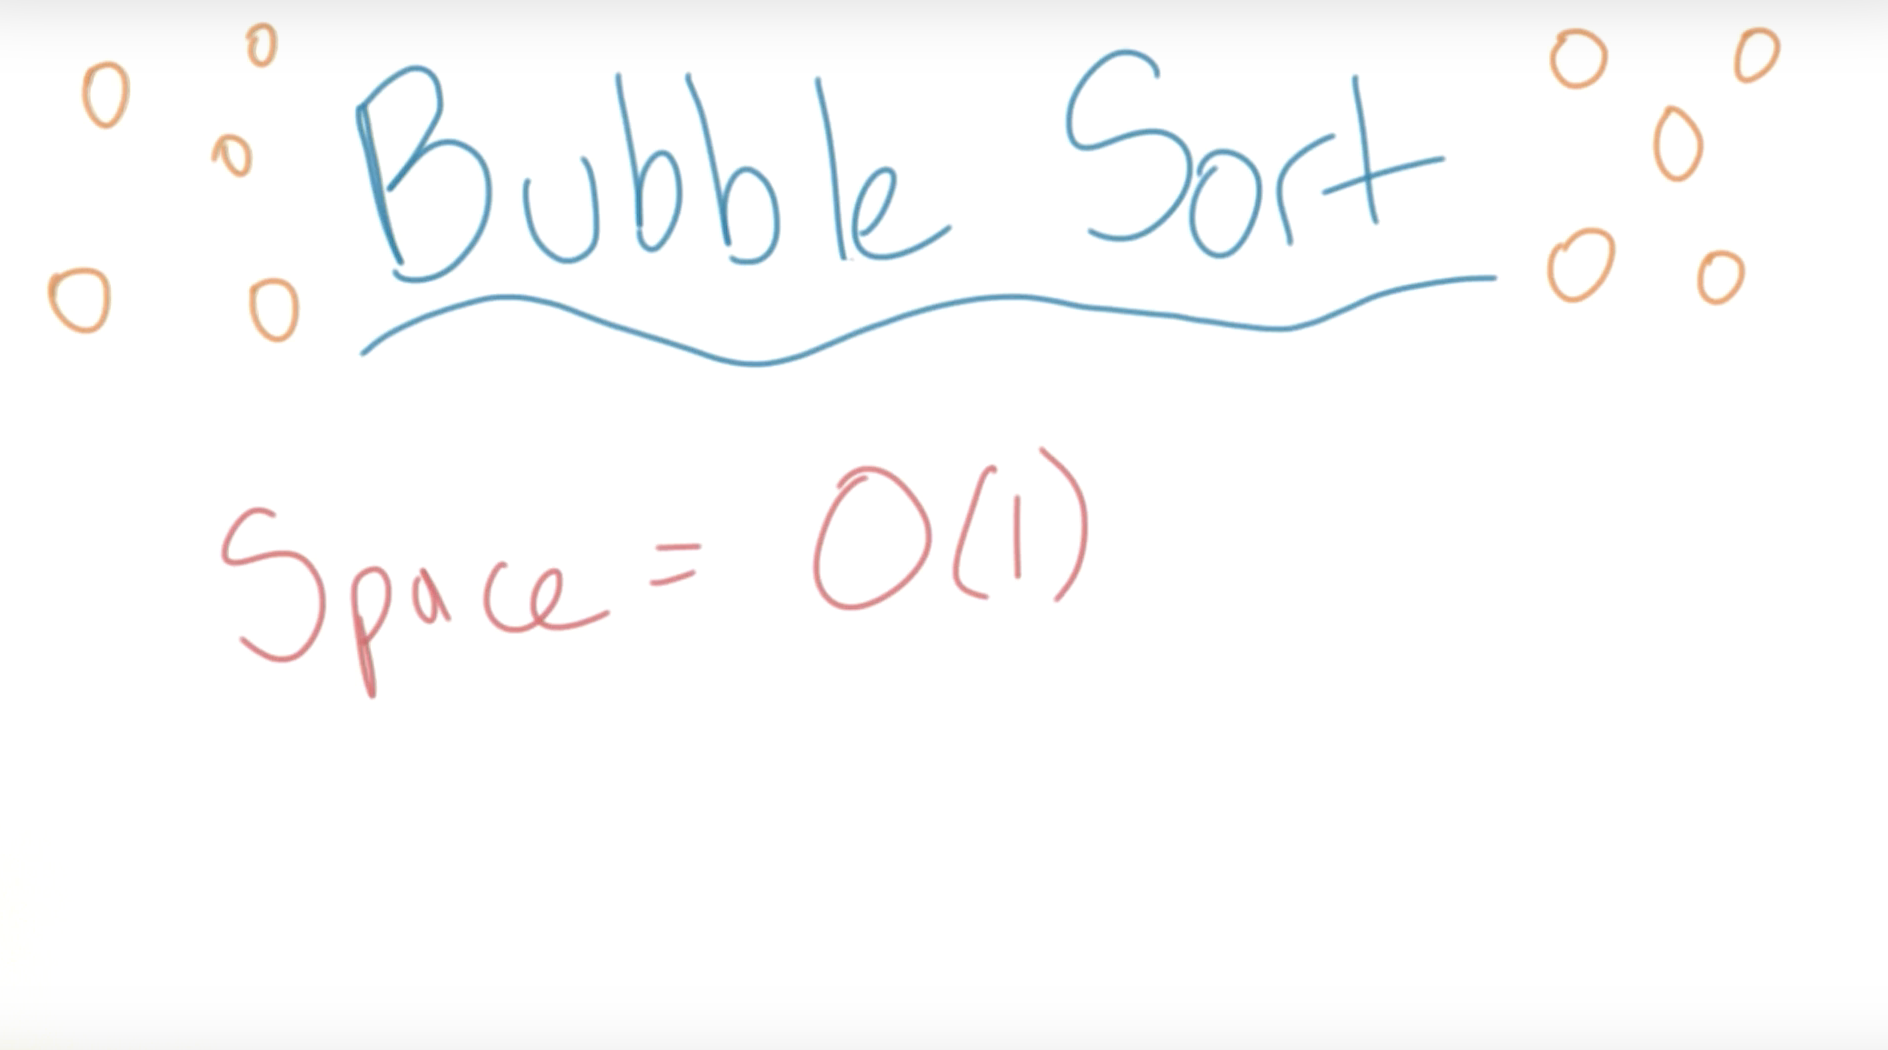 Bubble Sort
Space = O(1)